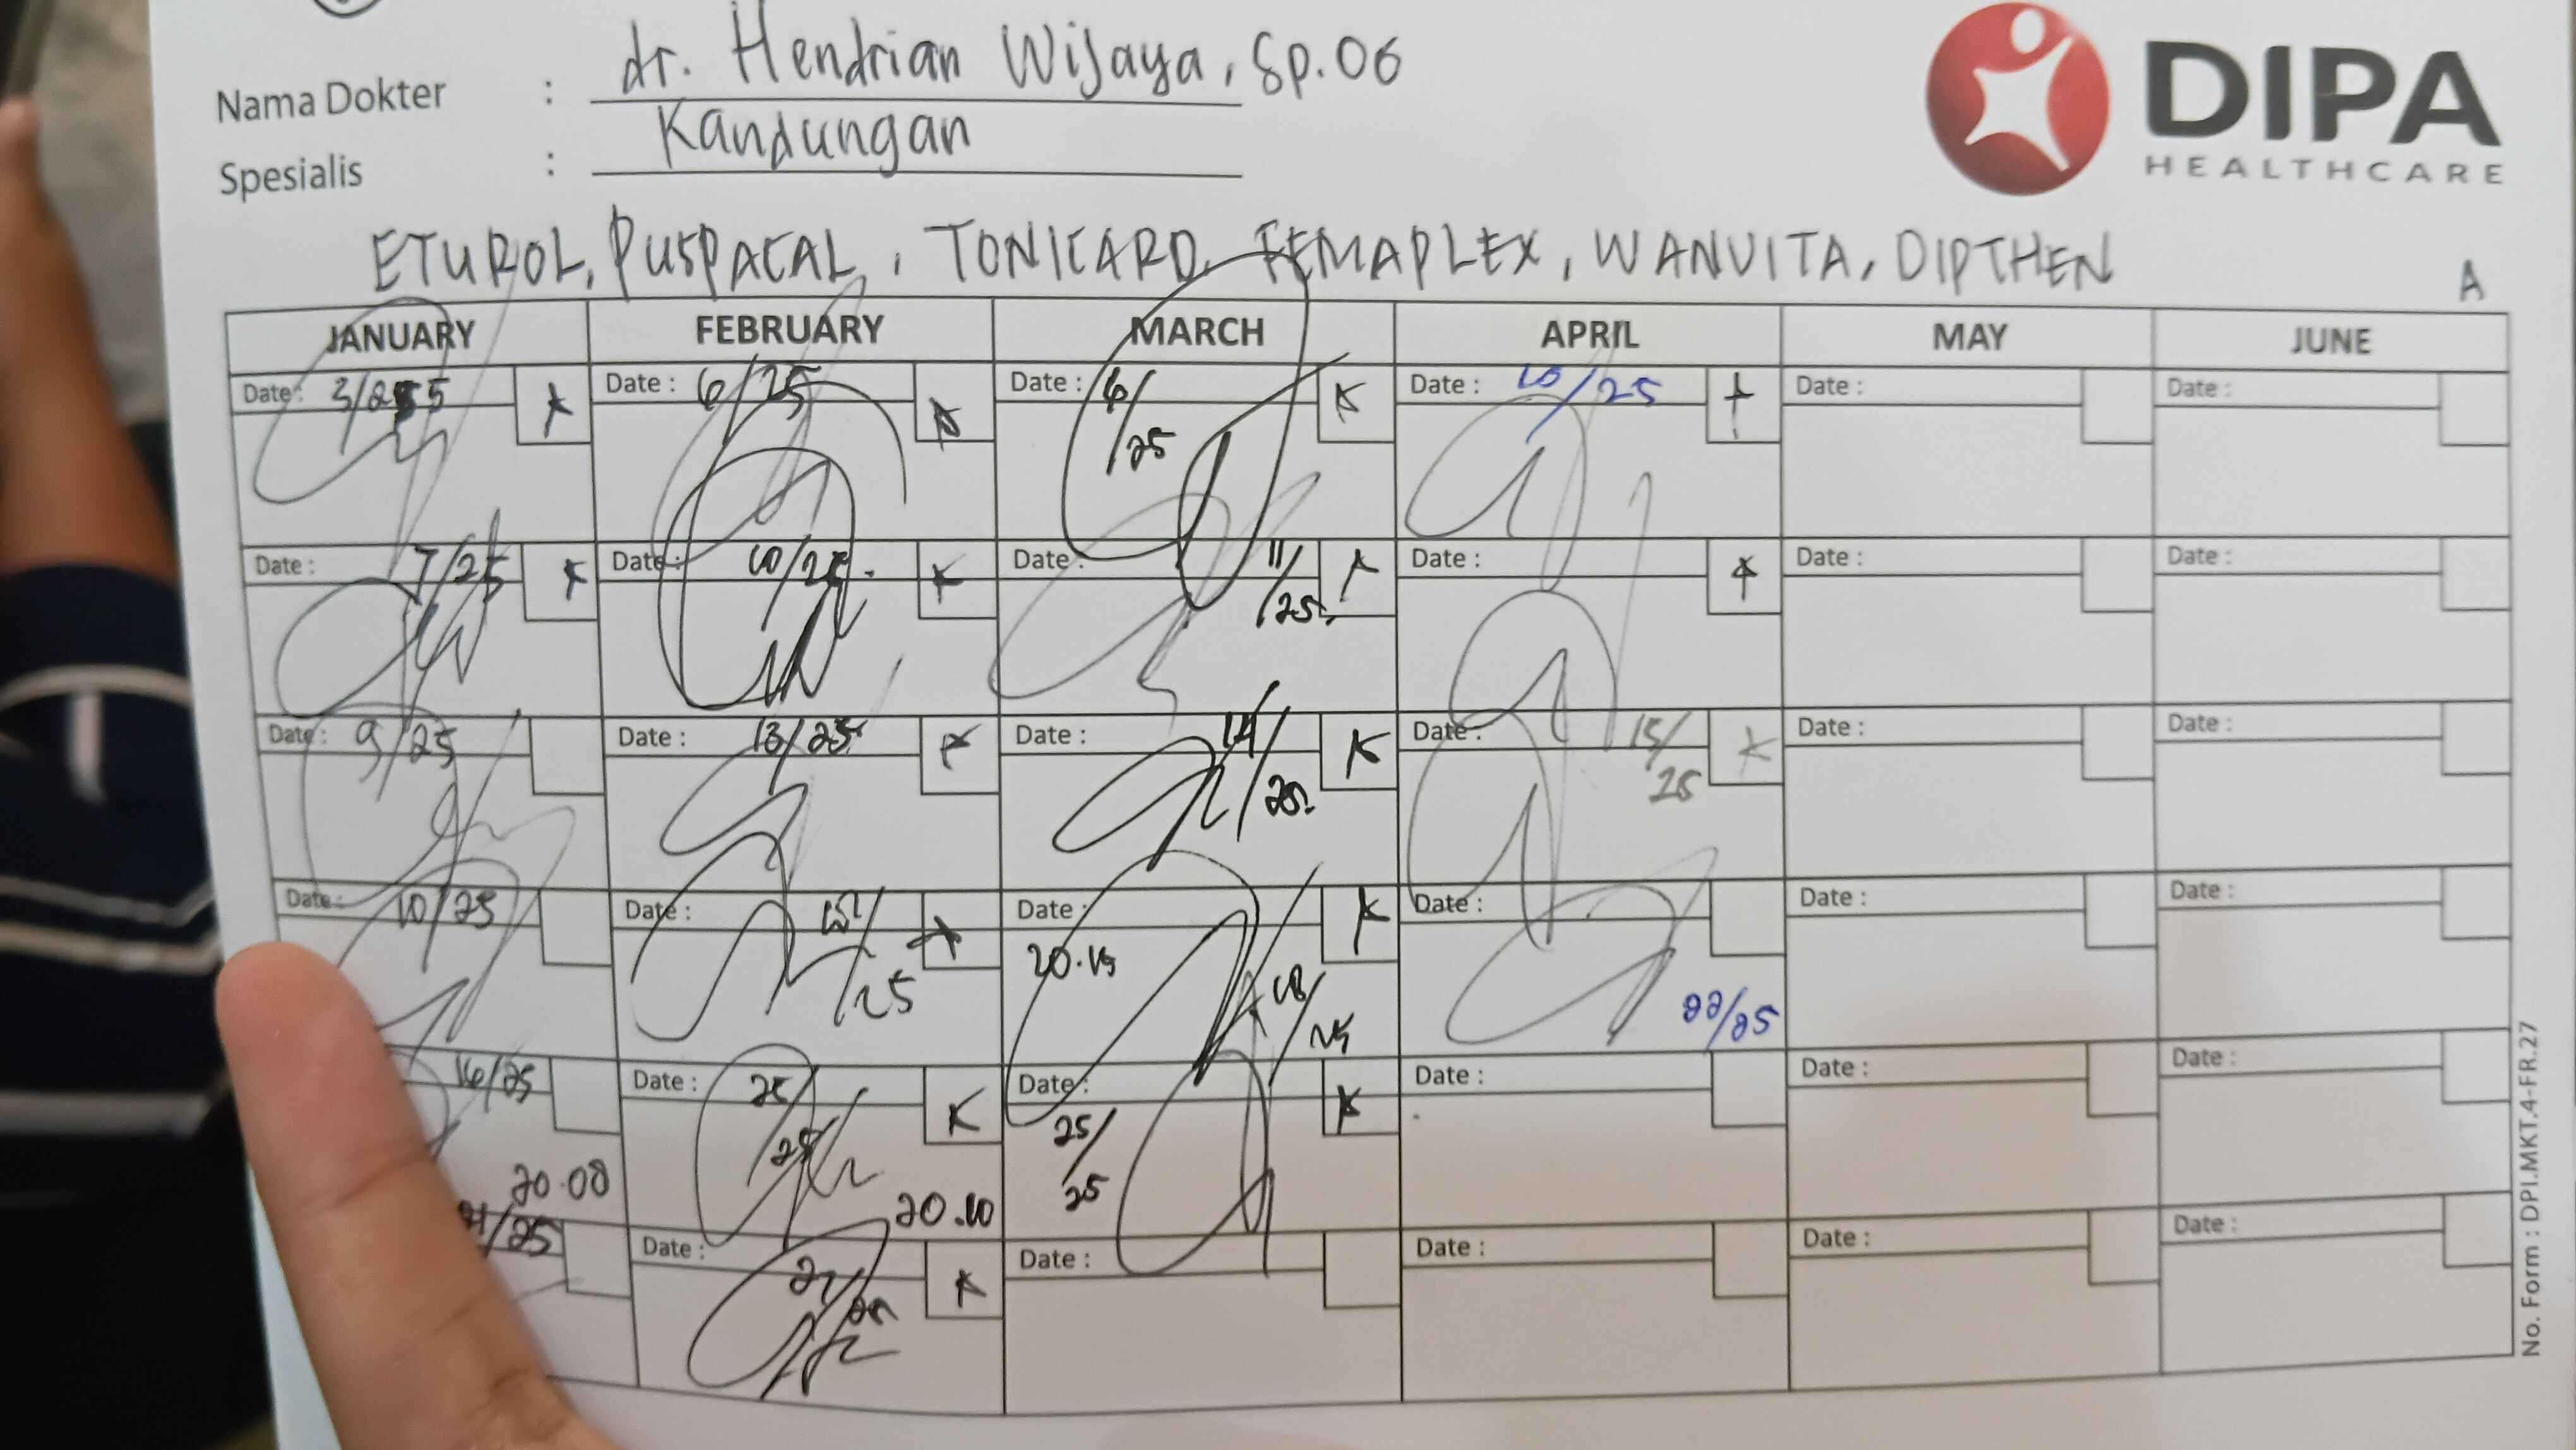 dr. Hendrian Wijaya, Sp.OG
Nama Dokter :
Kandungan
Spesialis :
DIPA
HEALTHCARE
ETUROL, PUSPACAL, TONICARD, FEMAPLEX, WANVITA, DIPTHEN
A
JANUARY FEBRUARY MARCH APRIL MAY JUNE
Date: 3/25 Date : 6/25 Date : 6/25 Date : 10/25 Date : Date :
Date : 7/25 Date : 10/25 Date : 11/25 Date : Date : Date :
Date : 9/25 Date : 13/25 Date : 14/25 Date : 15/25 Date : Date :
Date : 10/25 Date : /25 Date : 20.15 18/25 Date : 22/25 Date : Date :
16/25 20.08 Date : 25/25 20.10 Date : 25/25 Date : Date : Date :
21/25 Date : 27/25 Date : Date : Date : Date :
No. Form : DPI.MKT.4-FR.27